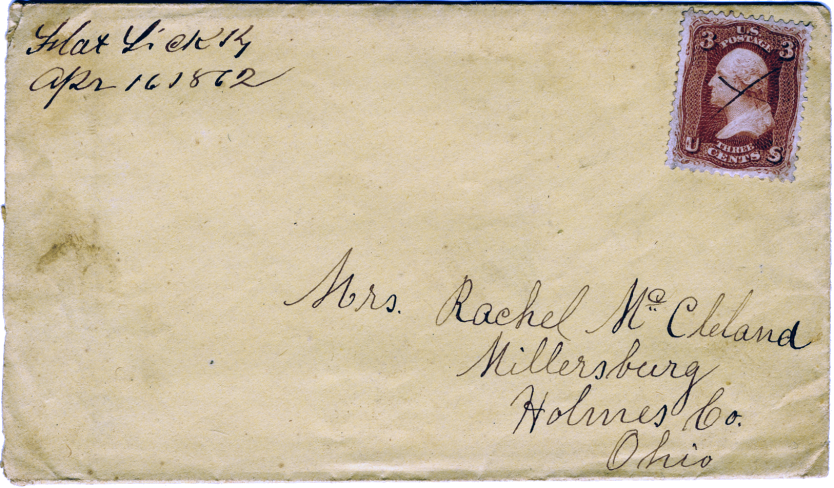 Flat Lick Ky
Apr 16 1862
3 U.S. POSTAGE 3
U THREE CENTS S
Mrs. Rachel McCleland
Millersburg
Holmes Co.
Ohio